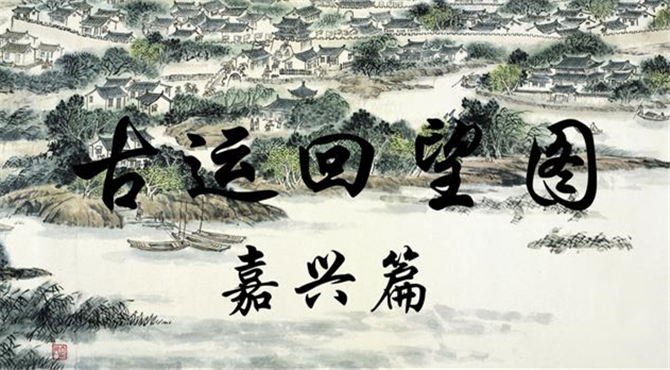 古运回望图
嘉兴篇